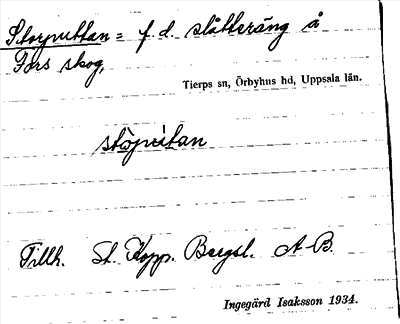 Storputtan = f. d. slåtteräng å
Fors skog,
Tierps sn, Örbyhus hd, Uppsala län.
Tillh. St. Kopp. Bergsl. A-B.
Ingegärd Isaksson 1934.